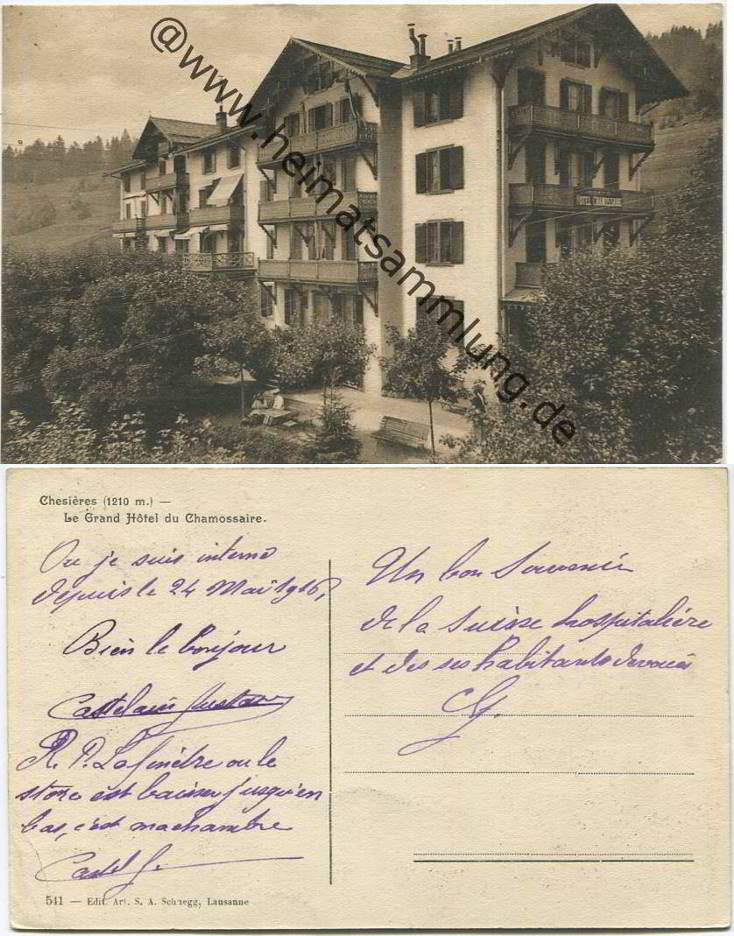 @www.heimatsammlung.de
Chesières (1210 m.) —
Le Grand Hôtel du Chamossaire.
Ou je suis interné
depuis le 24 Mai 1916,
Bien le bonjour
Castelain Gustave
R. P. La finêtre ou le
store est baisser jusqu'en
bas, c'est ma chambre
Castel G.
Un bon Souvenir
de la Suisse hospitalière
et des ses habitants devoués
CG.
541 — Edit. Art. S. A. Schnegg, Lausanne